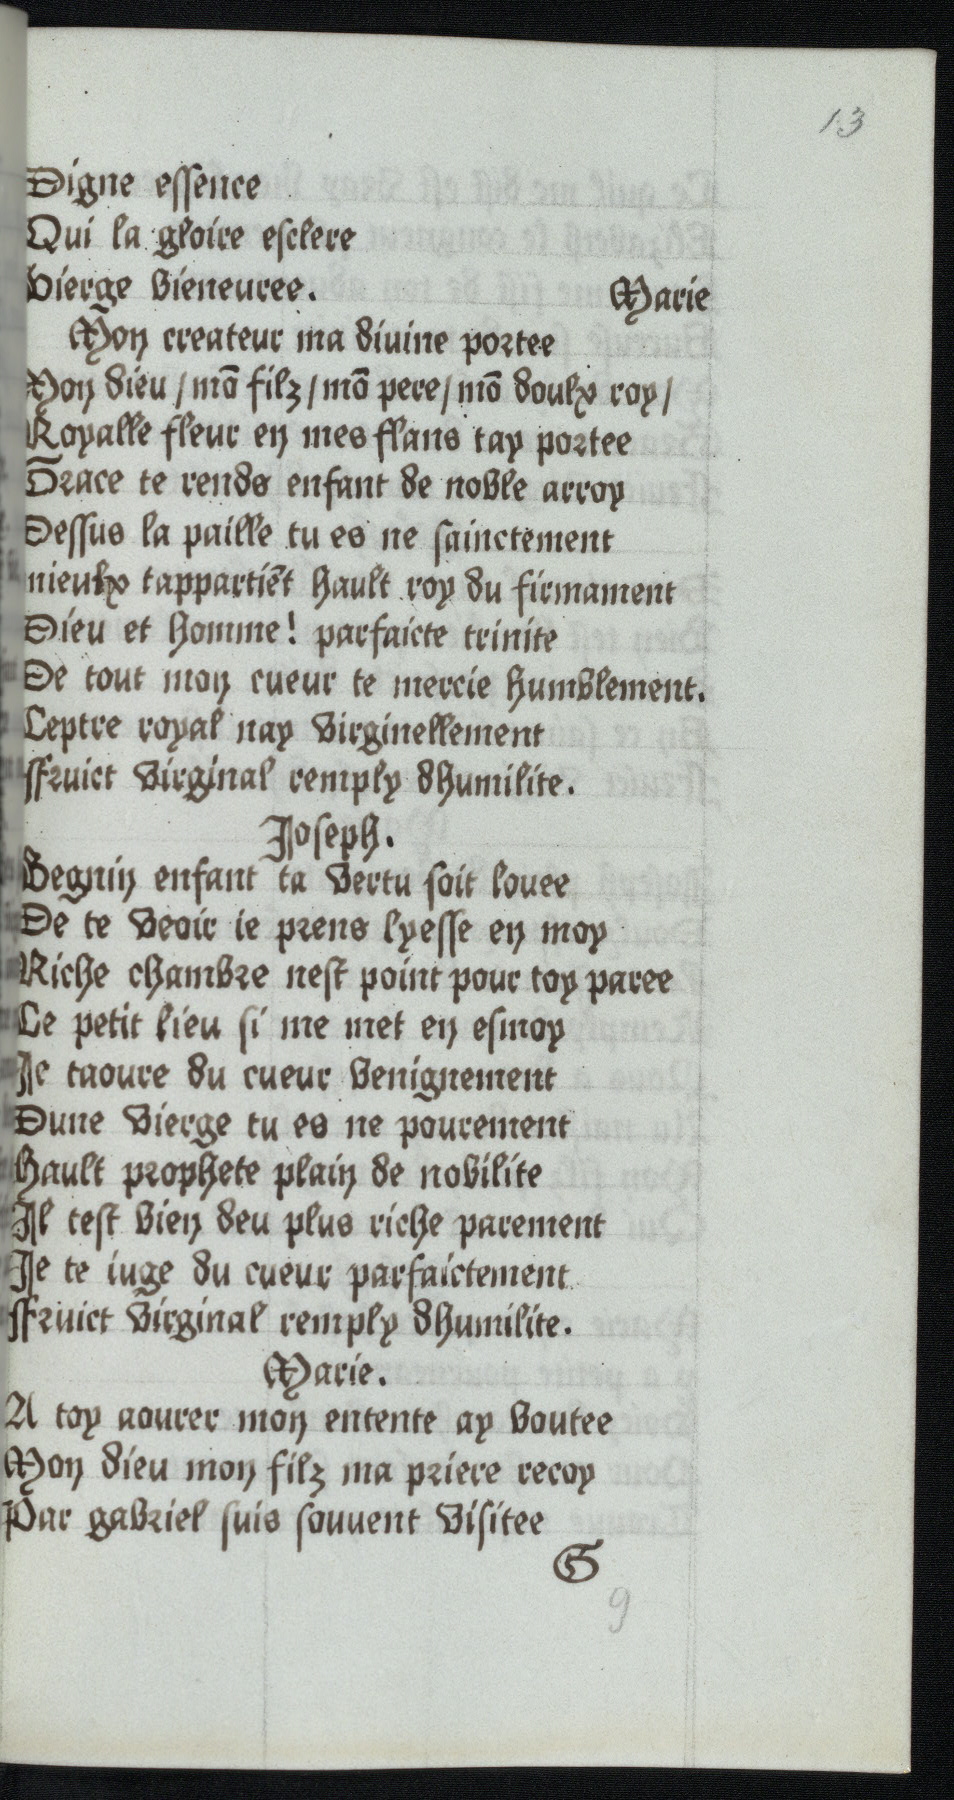 13
Digne essence
Qui la gloire esclere
Vierge bieneuree.
Marie
Mon createur ma diuine portee
Mon dieu / mō filz / mō pere / mō doulx roy /
Royalle fleur en mes flans tay portee
Grace te rends enfant de noble arroy
Dessus la paille tu es ne sainctement
mieulx tappartiēt hault roy du firmament
Dieu et homme! parfaicte trinite
De tout mon cueur te mercie humblement.
Ceptre royal nay virginellement
ffruict virginal remply dhumilite.
Joseph.
Begnin enfant ta vertu soit louee
De te veoir ie prens lyesse en moy
Riche chambre nest point pour toy paree
Le petit lieu si me met en esmoy
Je taoure du cueur benignement
Dune vierge tu es ne pourement
Hault prophete plain de nobilite
Il test bien deu plus riche parement
Je te iuge du cueur parfaictement
ffruict virginal remply dhumilite.
Marie.
A toy aourer mon entente ay boutee
Mon dieu mon filz ma priere recoy
Par gabriel suis souuent visitee
G
9